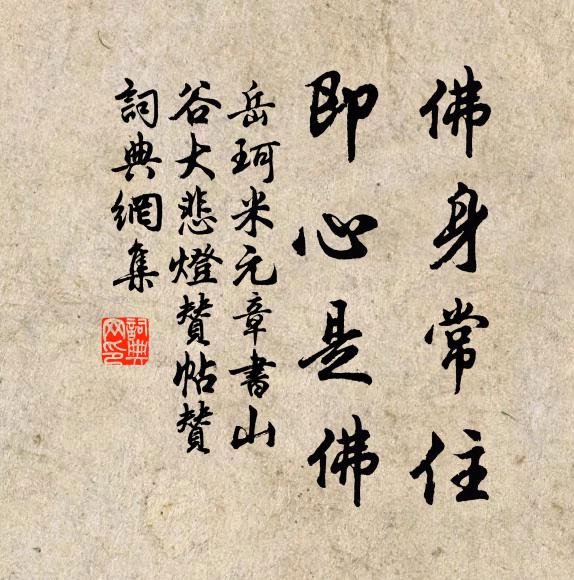 佛身常住
即心是佛
岳珂米元章書山
谷大悲燈贊帖贊
詞典網集
詞典
网印